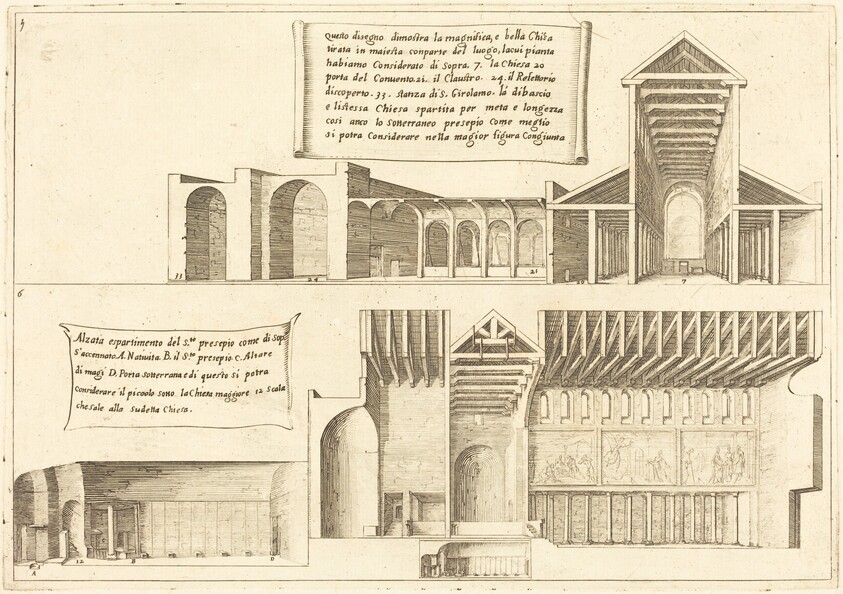 questo disegno dimostra la magnifica, e bella Chisa
tirata in maiesta conparte del luogo, lacui pianta
habiamo Considerato di Sopra. 7. la Chiesa 20
porta del Conuento. 21. il Claustro. 24. il Refettorio
discoperto. 33. stanza di S. Girolamo. la dibascio
e listessa Chiesa spartita per meta e longezza
cosi anco lo sotterraneo presepio Come meglio
si potra Considerare nella magior figura Congiunta
33
24
21
20
7
6
Alzata espartimento del S.to presepio come di Sop.
s'accennato A. Natiuita. B. il S.to presepio. C. Altare
di magi D. Porta sotterranea e di questo si potra
considerare il picciolo sono la Chiesa maggiore 12 Scala
che sale alla sudetta Chiesa.
A
12
B
D